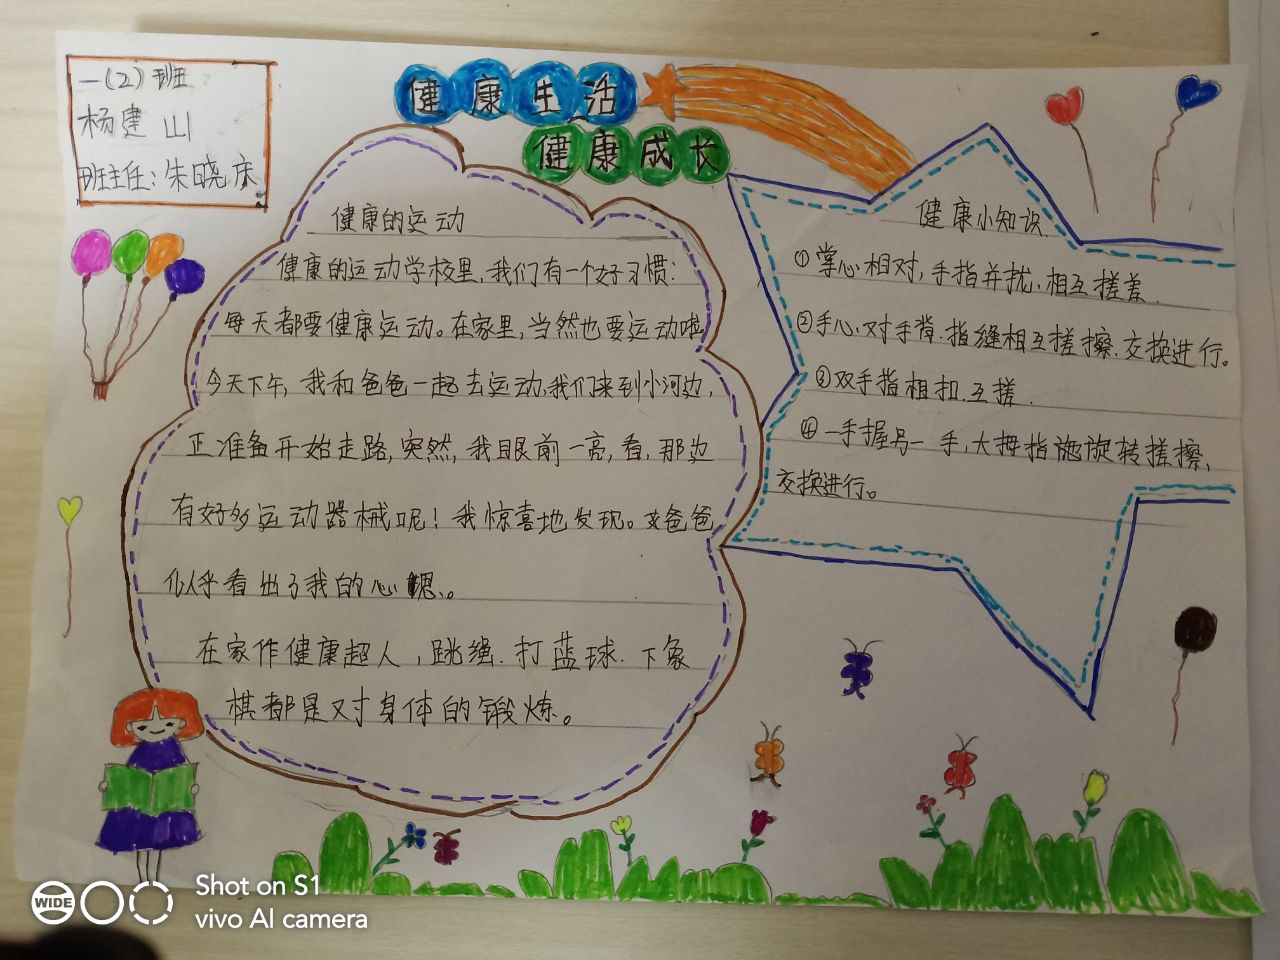 一(2)班
杨建山
班主任:朱晓庆
健康生活
健康成长
健康的运动
健康的运动学校里,我们有一个好习惯:
每天都要健康运动。在家里,当然也要运动啦
今天下午,我和爸爸一起去运动,我们来到小河边,
正准备开始走路,突然,我眼前一亮,看,那边
有好多运动器械呢!我惊喜地发现。爸爸
似乎看出了我的心思。
在家作健康超人,跳绳.打蓝球.下象
棋都是对身体的锻炼。
健康小知识
①掌心相对,手指并拢,相互搓差.
②手心对手背.指缝相互搓擦.交换进行。
③双手指相扣.互搓.
④一手握另一手,大拇指旋转搓擦,
交换进行。
WIDE
Shot on S1
vivo AI camera